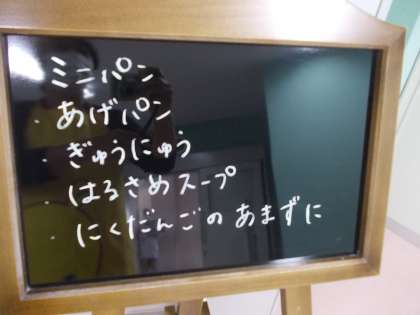 ミニパン
・あげパン
・ぎゅうにゅう
・はるさめスープ
・にくだんごのあまずに